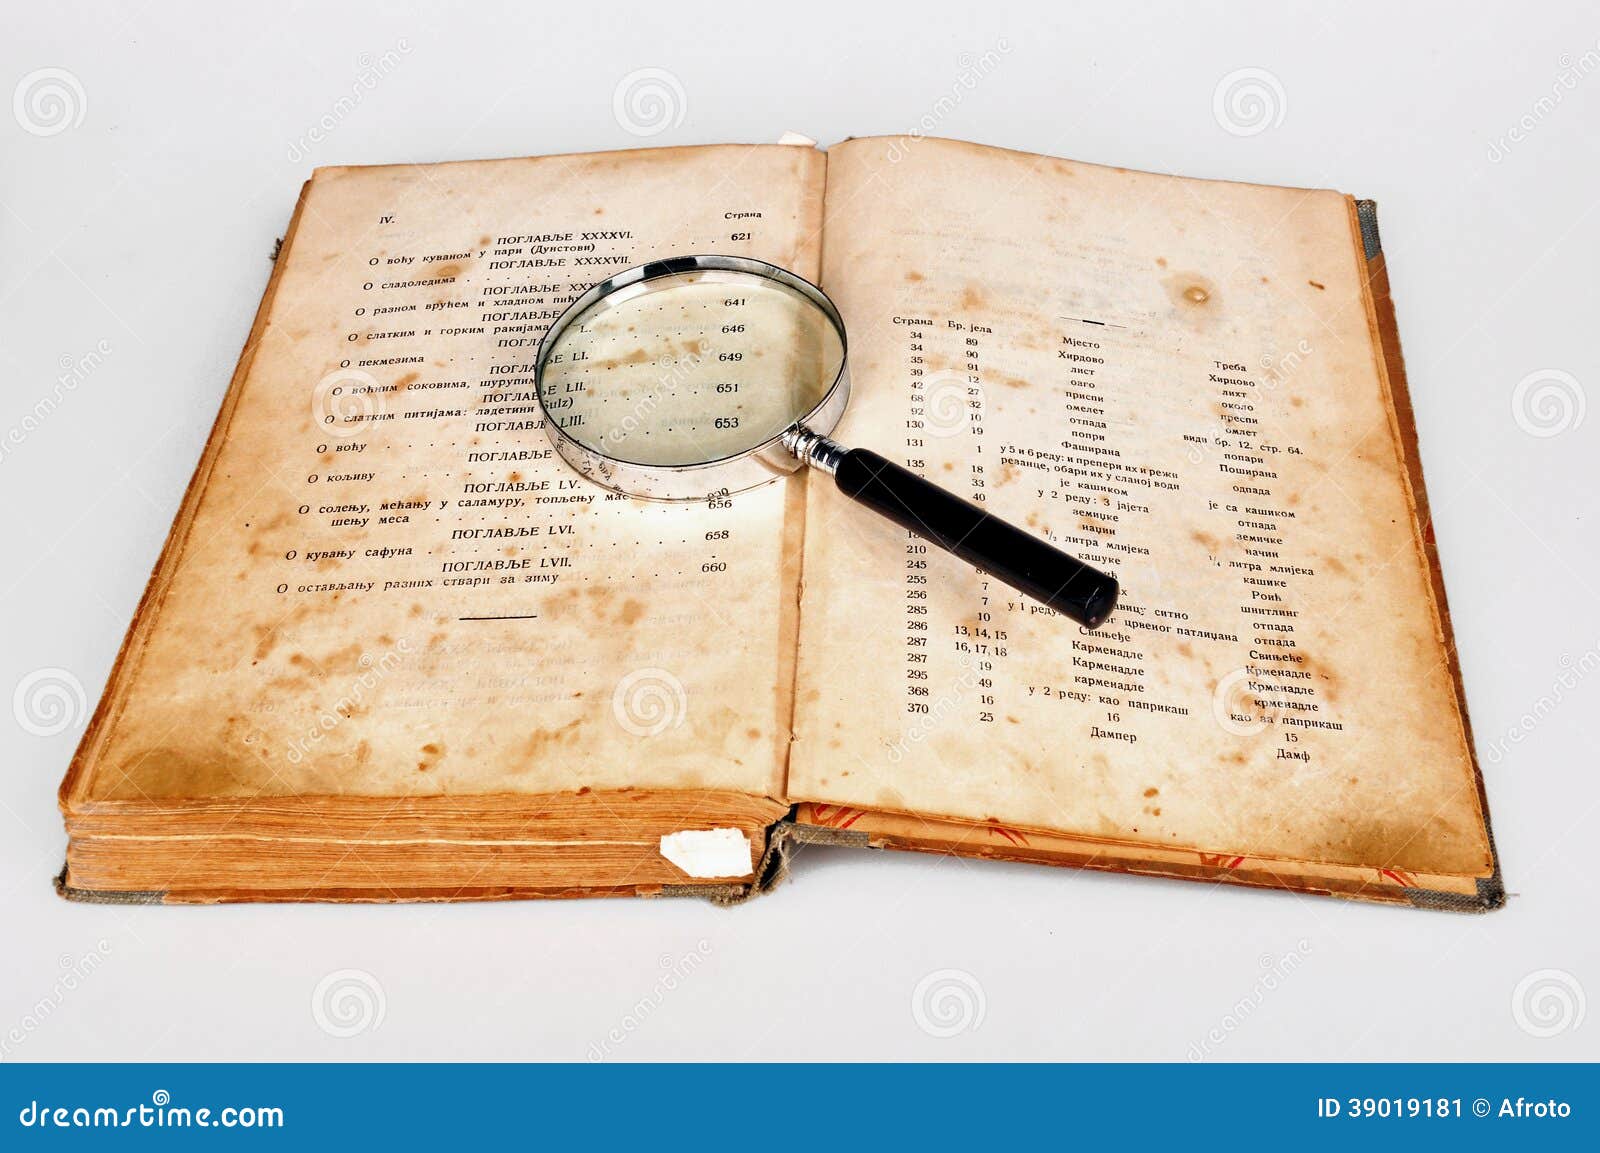 IV.
Страна
ПОГЛАВЉЕ XXXXVI.
О воћу куваном у пари (Дунстови) . . . . . . . 621
ПОГЛАВЉЕ XXXXVII.
О сладоледима
О разном врућем и хладном пићу
641
ПОГЛАВЉЕ
О слатким и горким ракијама
646
L.
О пекмезима
649
LI.
О воћним соковима, шурупима
651
LII.
О слатким питијама: ладетини
Sulz)
653
LIII.
О воћу
О кољиву
ПОГЛАВЉЕ LV.
О сољењу, мећању у саламуру, топљењу
шењу меса . . . . . . . 656
ПОГЛАВЉЕ LVI.
О кувању сафуна . . . . . . . 658
ПОГЛАВЉЕ LVII.
О остављању разних ствари за зиму . . . . . . . 660
Страна Бр. јела Мјесто Треба
34 89 Хирдово Хирцово
34 90 лист лихт
35 91 оаго около
39 12 приспи преспи
42 27 омелет омлет
68 32 отпада види бр. 12. стр. 64.
92 10 попри попари
130 19 Фаширана Поширана
131 1 у 5 и 6 реду: и препери их и режи
реванце, обари их у сланој води одпада
135 18 је кашиком је са кашиком
33 у 2 реду: 3 јајета отпада
40 земицке земичке
нацин начин
1/2 литра млијека 1/4 литра млијека
кашуке кашике
210 Роић
245 шнитлинг
255 7 отпада
256 7 у 1 реду: црвеног патлиџана отпада
285 10 Свињеђе Свињеће
286 13, 14, 15 Карменадле Крменадле
287 16, 17, 18 Карменадле Крменадле
287 19 карменадле крменадле
295 49 у 2 реду: као паприкаш као за паприкаш
368 16 16 15
370 25 Дампер Дамф
dreamstime.com
ID 39019181 © Afroto